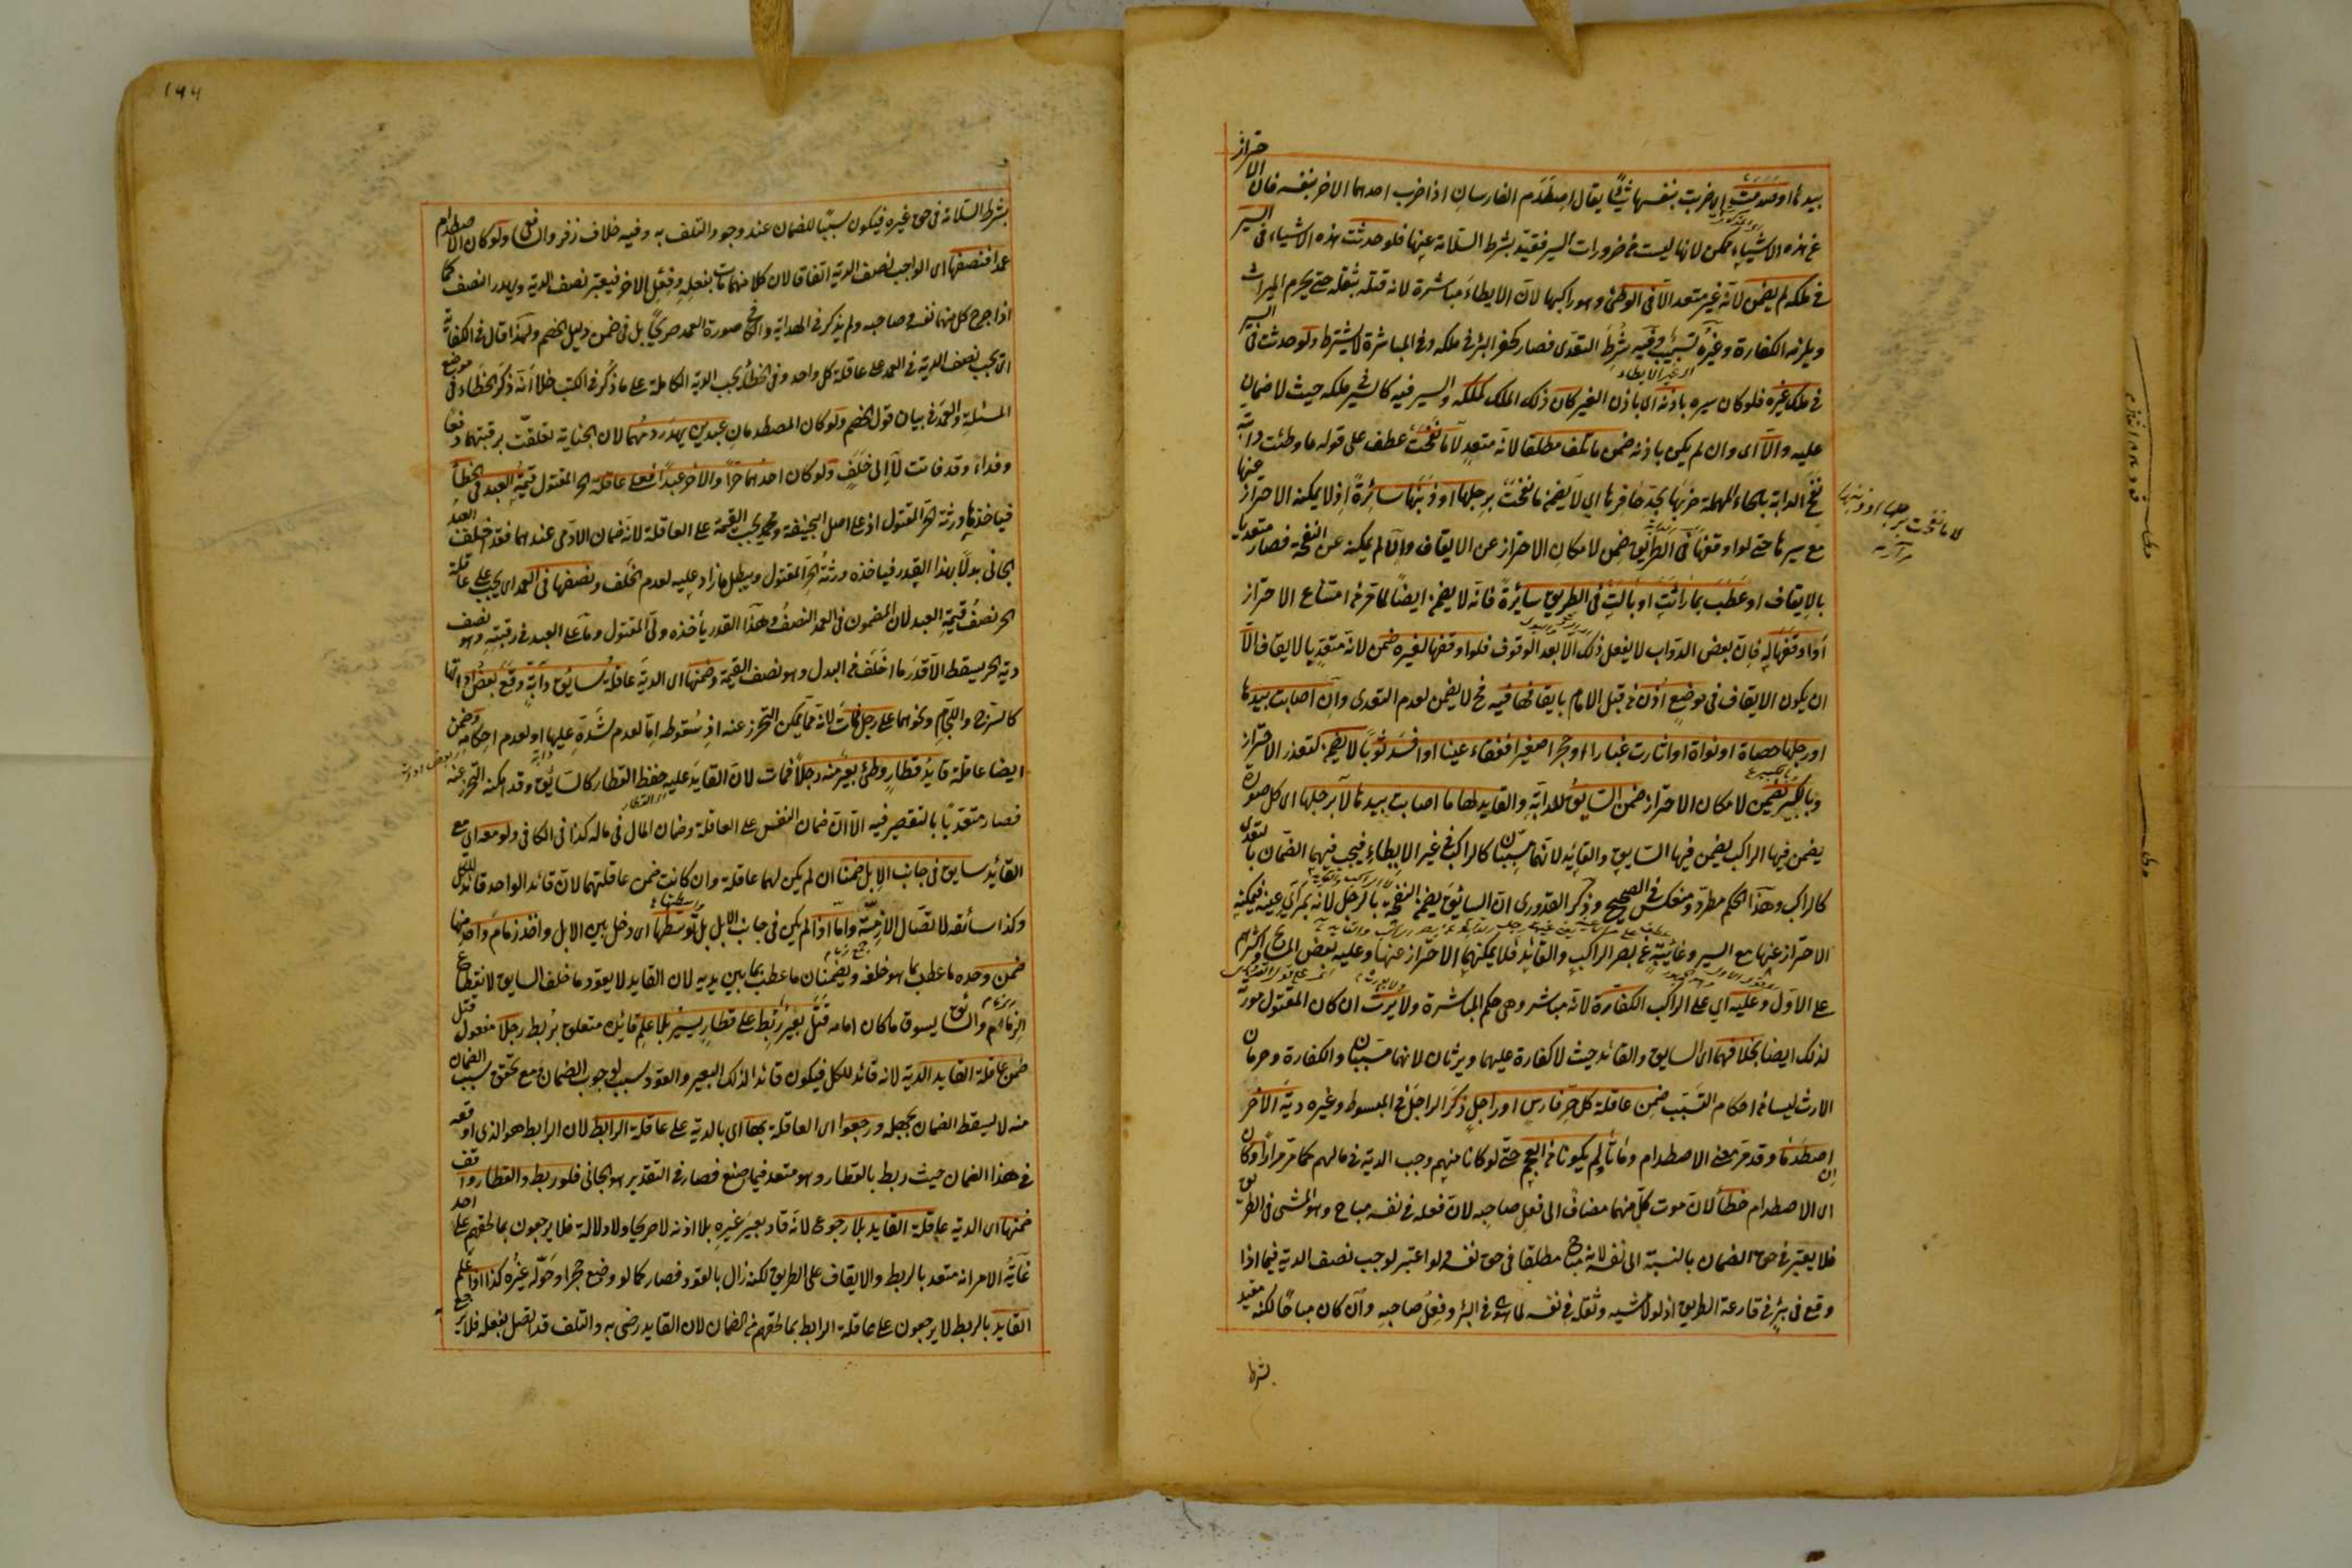 بيدها او صدمت اى ضربت بنفسها شيئا يقال اصطدم الفارسان اذا ضرب احدهما الاخر بنفسه فان الاحتراز
عن هذه الاشياء ممكن لانها ليست من ضرورات السير فقيد بشرط السلامة عنها فلو حدثت هذه الاشياء فى السير
فى ملكه لم يضمن لانه غير متعد الا فى الوطئ وهو راكبها لان الايطاء مباشرة لانه قتله بثقله حتى يحرم الميراث
ويلزمه الكفارة وغيره تسبيب وفيه شرط التعدى فصار كحفر البئر فى ملكه وفى المباشرة لا يشترط ولو حدث فى السير
فى ملك غيره فلو كان سيره باذنه اى باذن الغير كان ذلك الملك كملكه والسير فيه كالسير فى ملكه حيث لا ضمان
عليه والا اى وان لم يكن باذنه ضمن ما تلف مطلقا لانه متعد لا ما نفحت عطف على قوله ما وطئت دابة
نفح الدابة بالحاء المهملة ضربها بحد حافرها اى لا يضمن ما نفحت برجلها او ذنبها سائرة اذ لا يمكنه الاحتراز عنها
مع سيرها حتى لو اوقفها فى الطريق ضمن لامكان الاحتراز عن الايقاف وان لم يمكنه عن النفحة فصار متعديا
بالايقاف او عطب بما راثت او بالت فى الطريق سائرة فانه لا يضمن ايضا لما مر من امتناع الاحتراز
او اوقفها له فان بعض الدواب لا يفعل ذلك الا بعد الوقوف فلو اوقفها لغيره ضمن لانه متعد بالايقاف الا
ان يكون الايقاف فى موضع اذن من قبل الامام بايقافها فيه فح لا يضمن لعدم التعدى وان اصابت بيدها
او رجلها حصاة او نواة او اثارت غبارا او حجرا صغيرا ففقاء عينا او افسد ثوبا لا يضمن لتعذر الاحتراز
وبالكبير يضمن لامكان الاحتراز ضمن السايق للدابة والقايد لها ما اصابت بيدها لا برجلها اى كل صورة
يضمن فيها الراكب يضمن فيها السايق والقايد لانهما مسببان كالراكب فى غير الايطاء فيجب فيهما الضمان بالتعدى
كالراكب وهذا الحكم مطرد ومنعكس فى الصحيح وذكر القدورى ان السائق يضمن النفحة بالرجل لانه بمرأى عينه فيمكنه
الاحتراز عنها مع السير وغائبة عن بصر الراكب والقائد فلا يمكنهما الاحتراز عنها وعليه بعض المشايخ واكثرهم
على الاول وعليه اى على الراكب الكفارة لانه مباشر وهى حكم المباشرة ولا يرث ان كان المقتول مورثه
لذلك ايضا بخلافهما اى السايق والقائد حيث لا كفارة عليهما ويرثان لانهما مسببان والكفارة وحرمان
الارث ليسا من احكام التسبب ضمن عاقلة كل حر فارس او راجل ذكر الراجل فى المبسوط وغيره دية الاخر
ان اصطدما وقد مر معنى الاصطدام وماتا ولم يكونا من العجم حتى لو كانا منهم وجب الدية فى مالهم كما مر مرارا وكان
اى الاصطدام خطأ لان موت كل منهما مضاف الى فعل صاحبه لان فعله فى نفسه مباح وهو المشى فى الطريق
فلا يعتبر فى حق الضمان بالنسبة الى نفسه لانه مباح مطلقا فى حق نفسه ولو اعتبر لوجب نصف الدية فيما اذا
وقع فى بئر فى قارعة الطريق اذ لولا مشيه وثقله فى نفسه لما هوى فى البئر وفعل صاحبه وان كان مباحا لكنه مقيد
بشرط
لا ما نفحت برجلها او ذنبها
١٩٩
بشرط السلامة فى حق غيره فيكون سببا للضمان عند وجود التلف به وفيه خلاف زفر والشافعى ولو كان الاصطدام
عمدا فنصفها اى الواجب نصف الدية اتفاقا لان كلا منهما مات بفعله وفعل الاخر فيعتبر نصف الدية ويهدر النصف كما
اذا جرح كل منهما نفسه وصاحبه ولم يذكر فى الهداية والكافى صورة العمد صريحا بل فى ضمن دليل الخصم ولهذا قال فى الكفاية
انه يجب نصف الدية فى العمد على عاقلة كل واحد وفى الخطأ يجب الدية الكاملة على ما ذكر فى الكتب خلا انه ذكر الخطاء فى موضع
المسئلة والعمد فى بيان قول الخصم ولو كان المصطدمان عبدين يهدر دمهما لان الجناية تعلقت برقبتهما دفعا
وفداء وقد فاتت لا الى خلف ولو كان احدهما حرا والاخر عبدا فعلى عاقلة الحر المقتول قيمة العبد فى الخطأ
فياخذها ورثة الحر المقتول اذ على اصل ابيحنيفة ومحمد يجب القيمة على العاقلة لانه ضمان الادمى عندهما فقد اخلف العبد
الجانى بدلا بهذا القدر فياخذه ورثة الحر المقتول ويبطل ما زاد عليه لعدم الخلف ونصفها فى العمد اى يجب على عاقلة
الحر نصف قيمة العبد لان المضمون فى العمد النصف وهذا القدر يأخذه ولى المقتول وما على العبد فى رقبته وهو نصف
دية الحر يسقط الا قدر ما اخلف من البدل وهو نصف القيمة وضمنها اى الدية عاقلة سائق دابة وقع بعض اداتها
كالسرج واللجام ونحوهما على رجل فمات لانه مما يمكن التحرز عنه اذ سقوطه اما لعدم شده عليها او لعدم احكامه وضمن
ايضا عاقلة قايد قطار وطئ بعير منه رجلا فمات لان القايد عليه حفظ القطار كالسايق وقد امكنه التحرز عنه
فصار متعديا بالتقصير فيه الا ان ضمان النفس على العاقلة وضمان المال فى ماله كذا فى الكافى ولو معه اى مع
القائد سايق فى جانب الابل ضمنا ان لم يكن لهما عاقلة وان كانت ضمن عاقلتهما لان قائد الواحد قائد للكل
وكذا سائقه لاتصال الازمة واما اذا لم يكن فى جانب الابل بل توسطها اى دخل بين الابل واخذ زمام واحد منها
ضمن وحده ما عطب بما هو خلفه ويضمنان ما عطب بما بين يديه لان القايد لا يقود ما خلف السايق لانقطاع
الزمام والسائق يسوق ما كان امامه قتل بعير ربط على قطار يسير بلا علم قائده متعلق بربط رجلا مفعول قتل
ضمن عاقلة القايد الدية لانه قائد للكل فيكون قائدا لذلك البعير والقود سبب لوجوب الضمان ومع تحقق سبب الضمان
منه لا يسقط الضمان بجهله ورجعوا اى العاقلة بها اى بالدية على عاقلة الرابط لان الرابط هو الذى اوقعه
فى هذا الضمان حيث ربط بالقطار وهو متعد فيما صنع فصار فى التقدير هو الجانى فلو ربط والقطار واقف
ضمنها اى الدية عاقلة القايد بلا رجوع لانه قاد بعير غيره بلا اذنه لا صريحا ولا دلالة فلا يرجعون بما لحقهم على احد
غاية الامر انه متعد بالربط والايقاف على الطريق لكنه زال بالقود فصار كما لو وضع حجرا وحوله غيره كذا اذا علم
القايد بالربط لا يرجعون على عاقلة الرابط بما لحقهم من الضمان لان القايد رضى به والتلف قد اتصل بفعله فلا يرجع